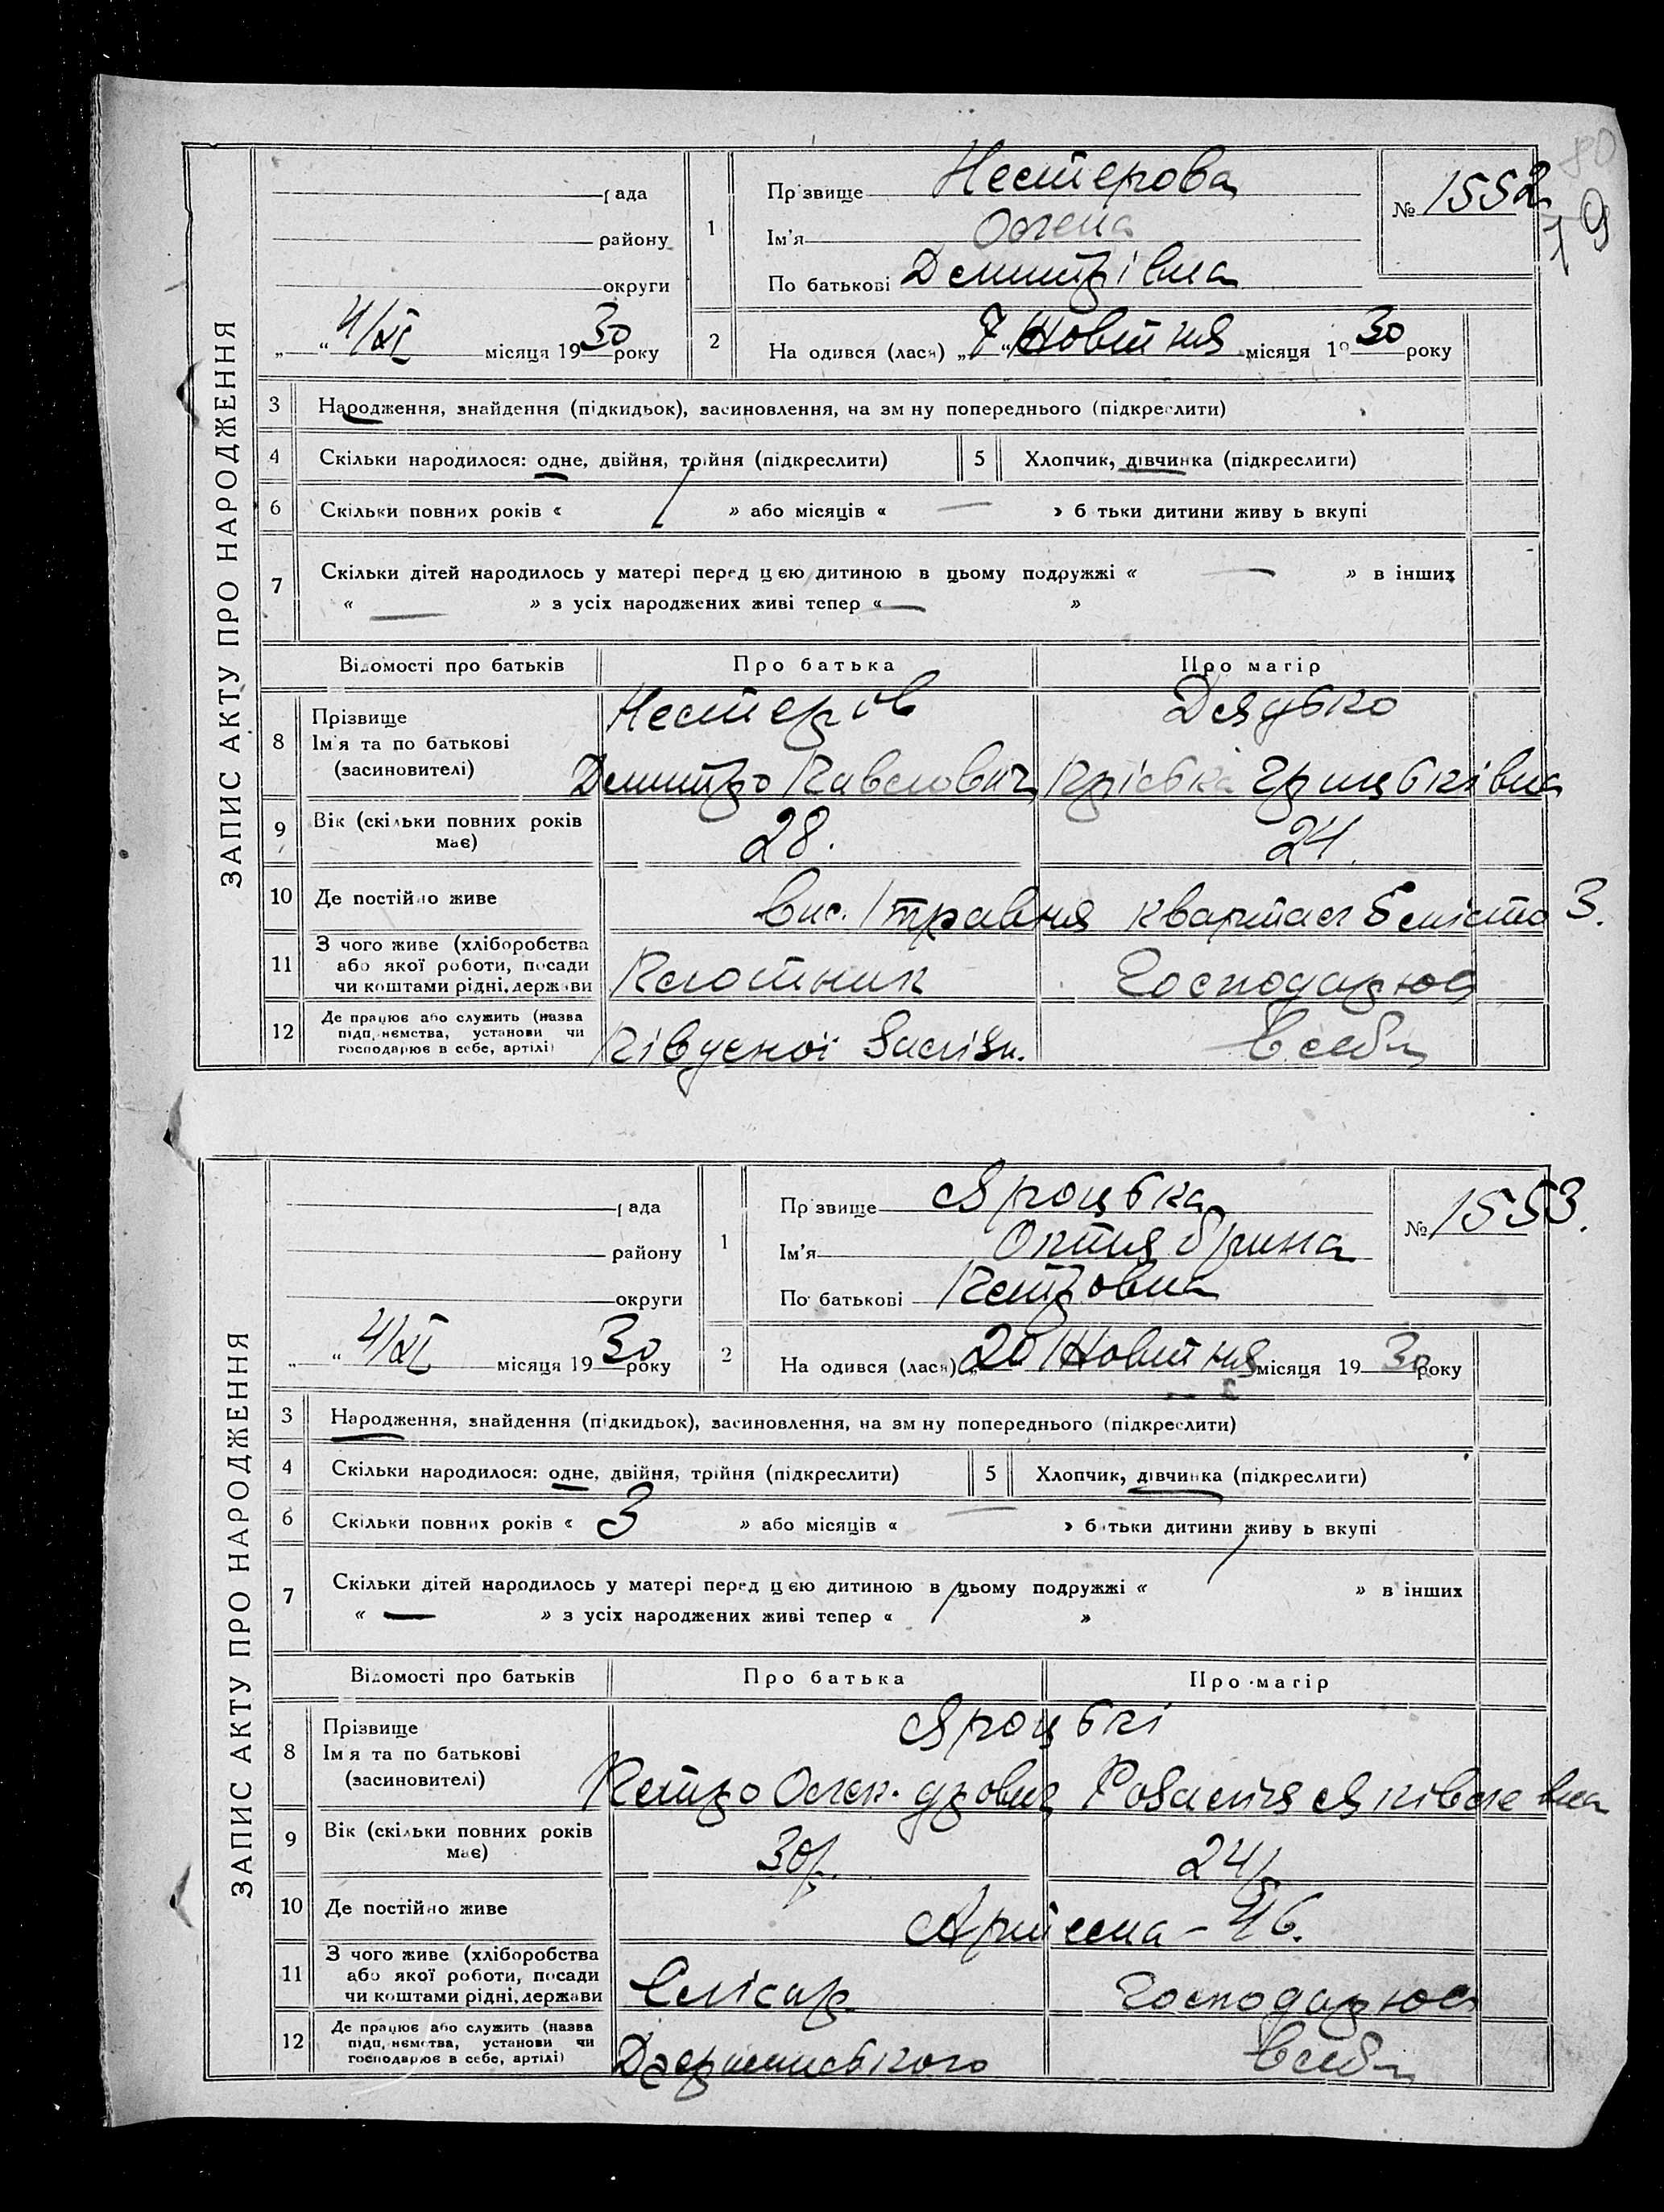 80
19
ЗАПИС АКТУ ПРО НАРОДЖЕННЯ
рада
району
округи
„ “ 4/XI місяця 1930 року
1
Прізвище Нестерова
Ім'я Олена
По батькові Дмитрівна
№ 1552
2
На одився (лася) „7“ Жовтня місяця 1930 року
3 Народження, знайдення (підкидьок), засиновлення, на зм ну попереднього (підкреслити)
4 Скільки народилося: одне, двійня, трійня (підкреслити)
5 Хлопчик, дівчинка (підкреслити)
6 Скільки повних років « 1 » або місяців « — » б тьки дитини живу ь вкупі
7 Скільки дітей народилось у матері перед цією дитиною в цьому подружжі « — » в інших
« — » з усіх народжених живі тепер « — »
Відомості про батьків
Про батька
Про матір
8 Прізвище
Ім'я та по батькові
(засиновителі)
Нестеров
Дмитро Павлович
Дядько
Грицьківна
9 Вік (скільки повних років
має)
28.
24.
10 Де постійно живе
вис. 1 травня квартал 5 місто 3.
11 З чого живе (хліборобства
або якої роботи, посади
чи коштами рідні, держави
Плотник
Господарює
12 Де працює або служить (назва
підп, немства, установи чи
господарює в себе, артілі)
Південої Залізн.
В себе
ЗАПИС АКТУ ПРО НАРОДЖЕННЯ
рада
району
округи
„ “ 4/XI місяця 1930 року
1
Прізвище Яроцька
Ім'я Октябрина
По батькові Петровна
№ 1553.
2
На одився (лася) „20 Жовтня місяця 1930 року
3 Народження, знайдення (підкидьок), засиновлення, на зм ну попереднього (підкреслити)
4 Скільки народилося: одне, двійня, трійня (підкреслити)
5 Хлопчик, дівчинка (підкреслити)
6 Скільки повних років « 3 » або місяців « — » б тьки дитини живу ь вкупі
7 Скільки дітей народилось у матері перед цією дитиною в цьому подружжі « 1 » в інших
« — » з усіх народжених живі тепер « 1 »
Відомості про батьків
Про батька
Про матір
8 Прізвище
Ім'я та по батькові
(засиновителі)
Яроцькі
Петро
Розалія Яківлевна
9 Вік (скільки повних років
має)
30р.
24р.
10 Де постійно живе
Артема – 46.
11 З чого живе (хліборобства
або якої роботи, посади
чи коштами рідні, держави
Слісар
Господарює
12 Де працює або служить (назва
підп, немства, установи чи
господарює в себе, артілі)
Дзержинського
В себе